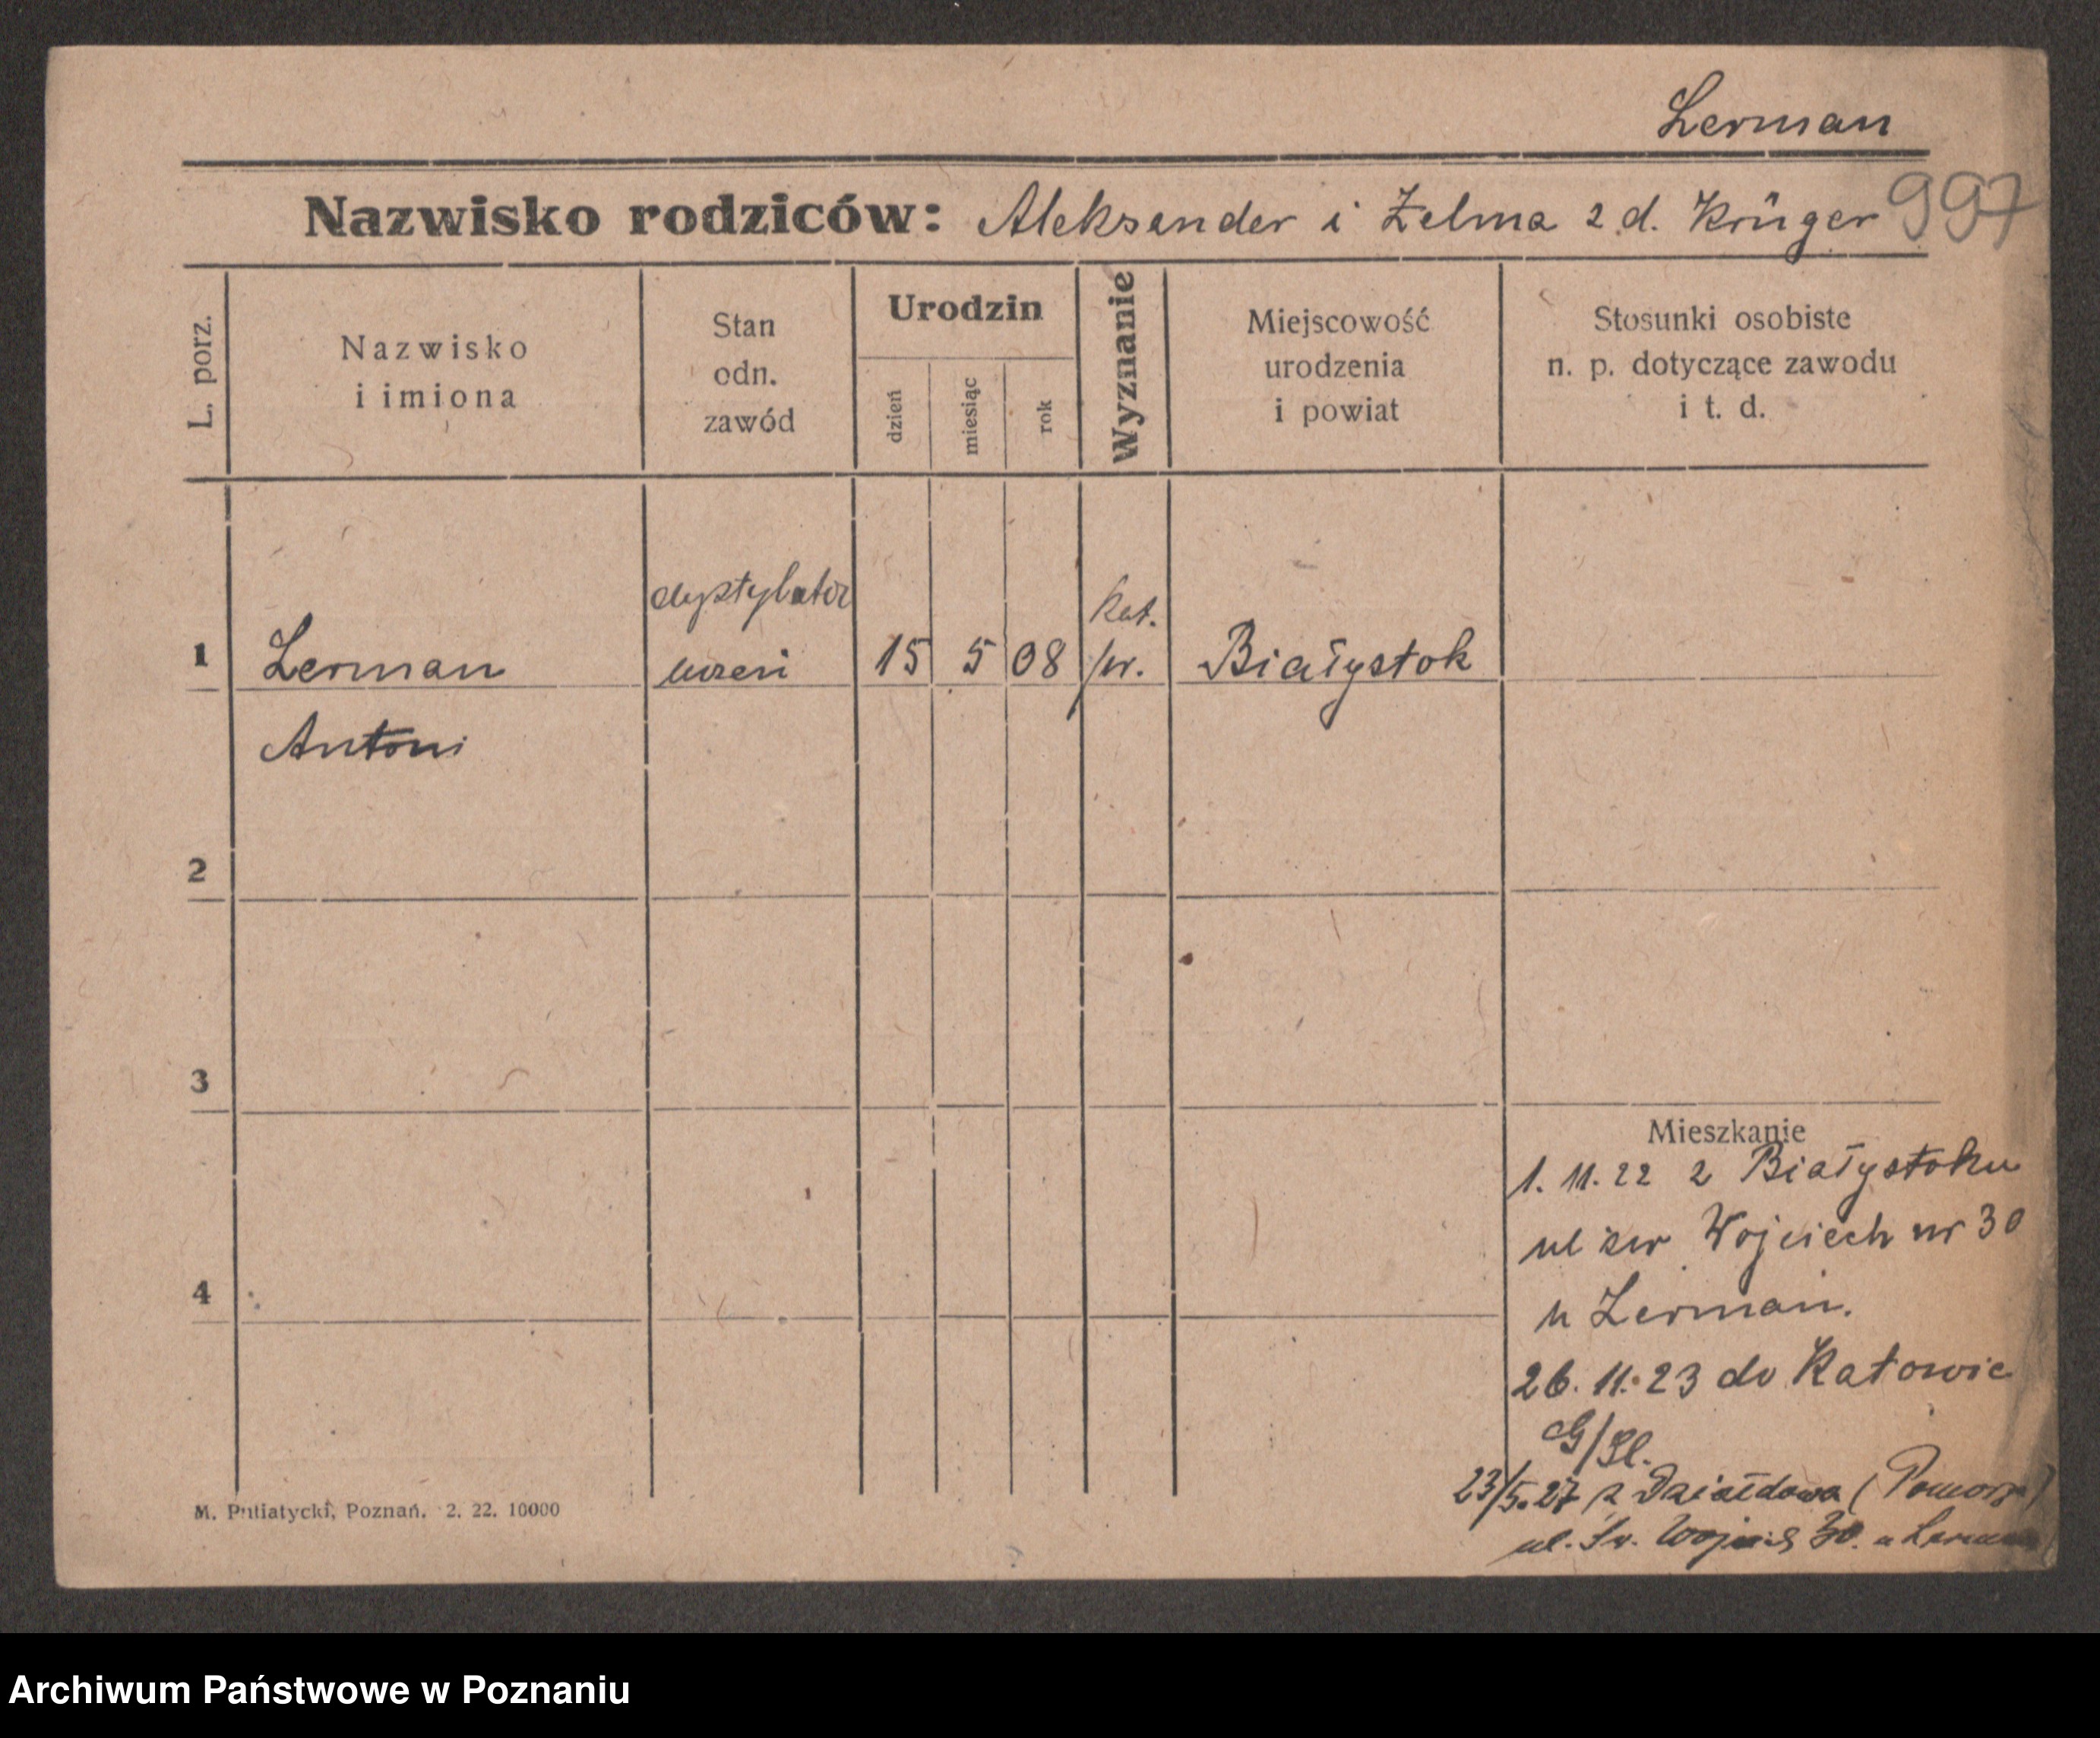 Lerman
Nazwisko rodziców: Aleksander i Zelma z d. Krüger 997
L. porz.
Nazwisko
i imiona
Stan
odn.
zawód
Urodzin
dzień
miesiąc
rok
Wyznanie
Miejscowość
urodzenia
i powiat
Stosunki osobiste
n. p. dotyczące zawodu
i t. d.
dystylator
kat.
1 Lerman uczeń 15 5 08 pr. Białystok
Antoni
2
3
4
Mieszkanie
1. 11. 22 z Białystoku
ul św Wojciech nr 30
u Lerman.
26. 11. 23 do Katowic
G/Śl.
23/5. 27 z Działdowa (Pomorze)
ul. Św. Wojciech 30. u Lerman
M. Putiatycki, Poznań. 2. 22. 10000
Archiwum Państwowe w Poznaniu